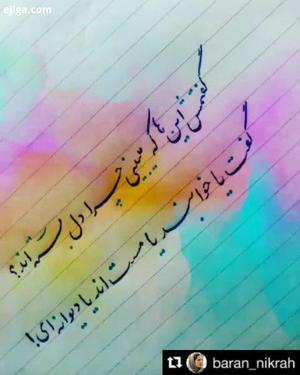 ejiga.com
گفتمش این ها که می بینی چرا دل بسته اند؟
گفت یا خوابند یا مست اند یا دیوانه ای!
baran_nikrah